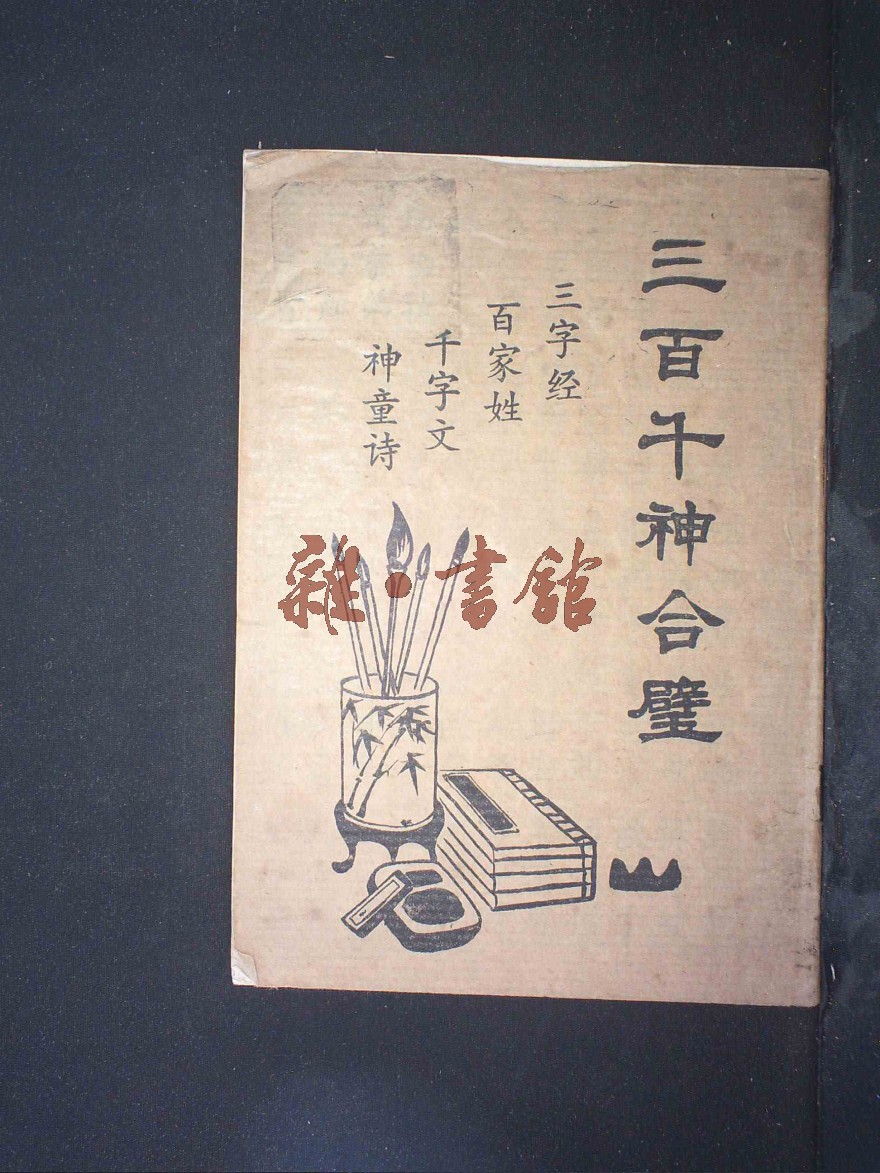 三百千神合璧
三字经
百家姓
千字文
神童诗
雜·書館